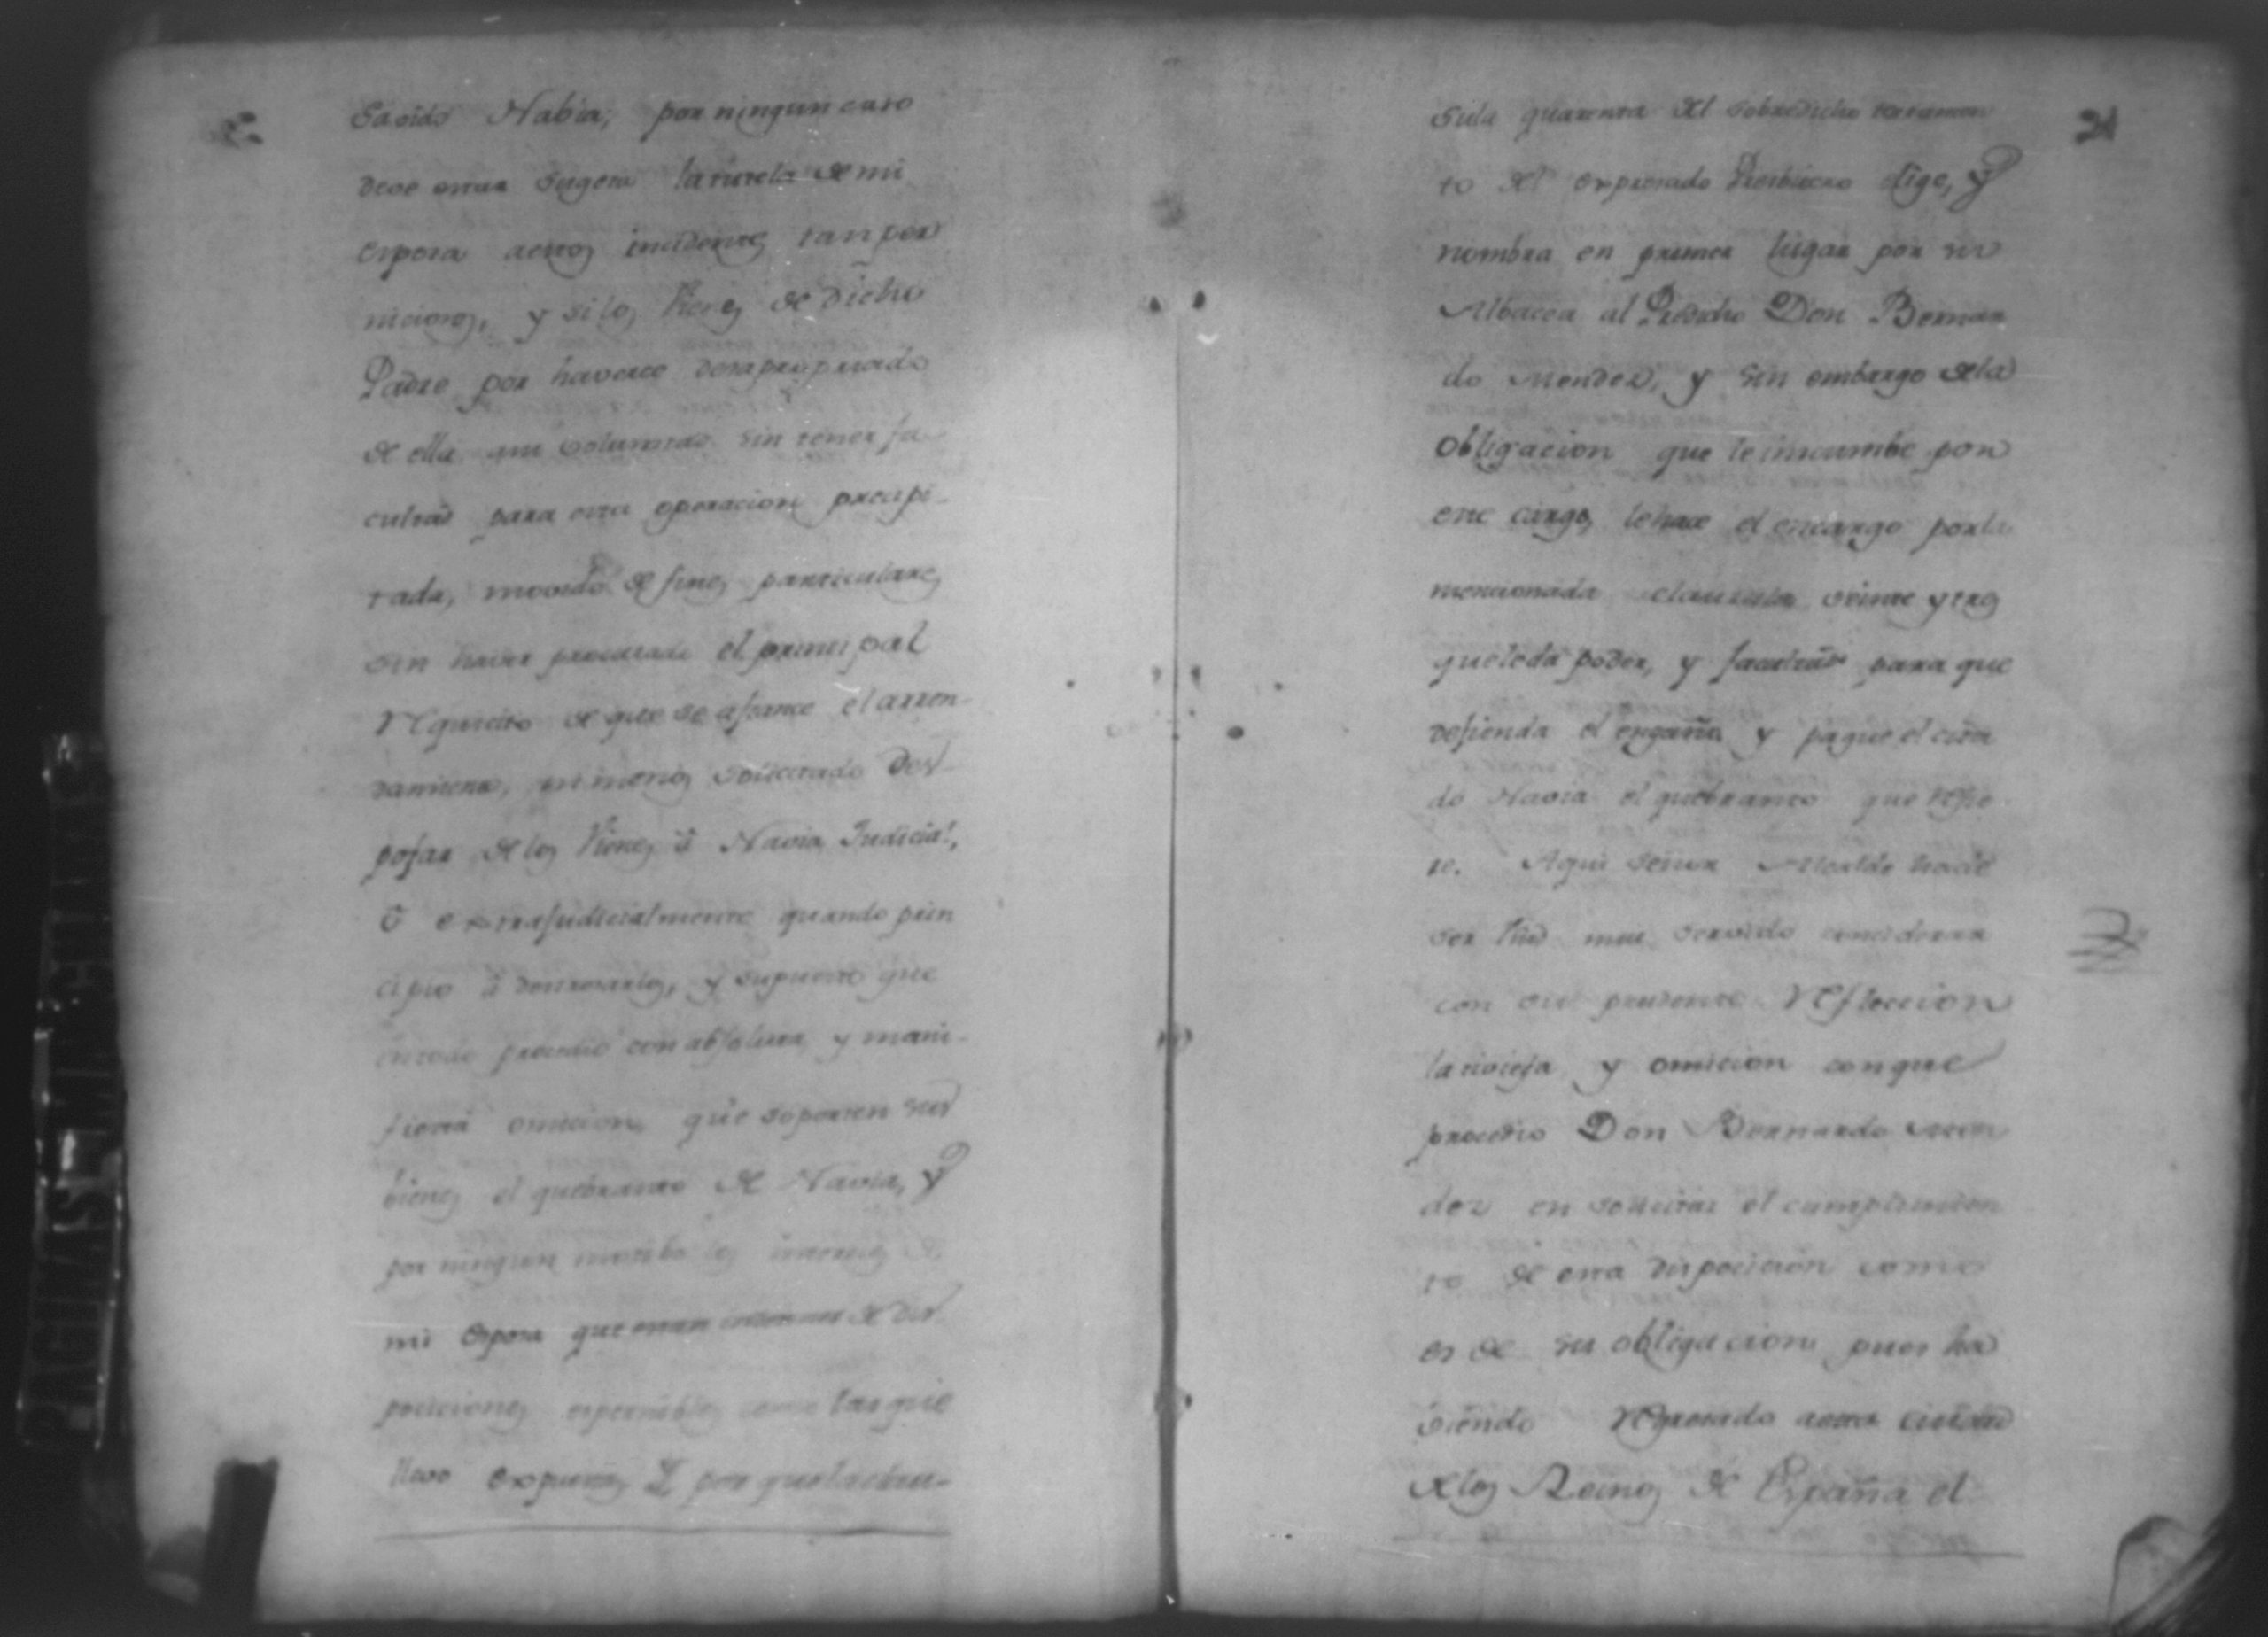 Savido Nabia; por ningun caso
deve estar sugeta la tutela de mi
esposa a estos incidentes tan per
niciosos, y si los Vienes de dicho
Padre por haverce desapropriado
de ella mi voluntad sin tener fa-
cultad para esta operacion precipi-
tada, movido de fines particulares,
sin haver procurado el principal
requicito de que se afiance el arren-
damiento, ni menos solicitado des-
pojar de los Vienes á Navia Judicial,
ó extrajudicialmente quando prin
cipio á destrosarlos, y supuesto que
en todo procedió con absoluta, y mani-
fiesta omicion, que soporten sus
bienes el quebranto de Navia, y
por ningun motibo los intereses de
mi esposa que estan de dis-
pociciones como las que
llevo expuestas. Y por que la clau-
sula quarenta del sobredicho testamen
to del expresado Presbitero elige, y
nombra en primer lugar por su
Albacea al Predicho Don Bernar
do Mendez, y sin embargo de la
obligacion que le incumbe por
este cargo, le hace el encargo por la
mencionada clausula veinte y tres
que le dá poder, y facultad para que
defienda el engaño y pague el cita
do Navia el quebranto que refie
re. Aqui Señor Alcalde ha de
ser Vmd mui servido considerar
con su prudente refleccion
la tivieza y omicion con que
procedio Don Bernardo Men
dez en solicitar el cumplimien
to de esta dispocicion como
es de su obligacion pues ha
viendo regresado a esta ciudad
de los Reinos de España el